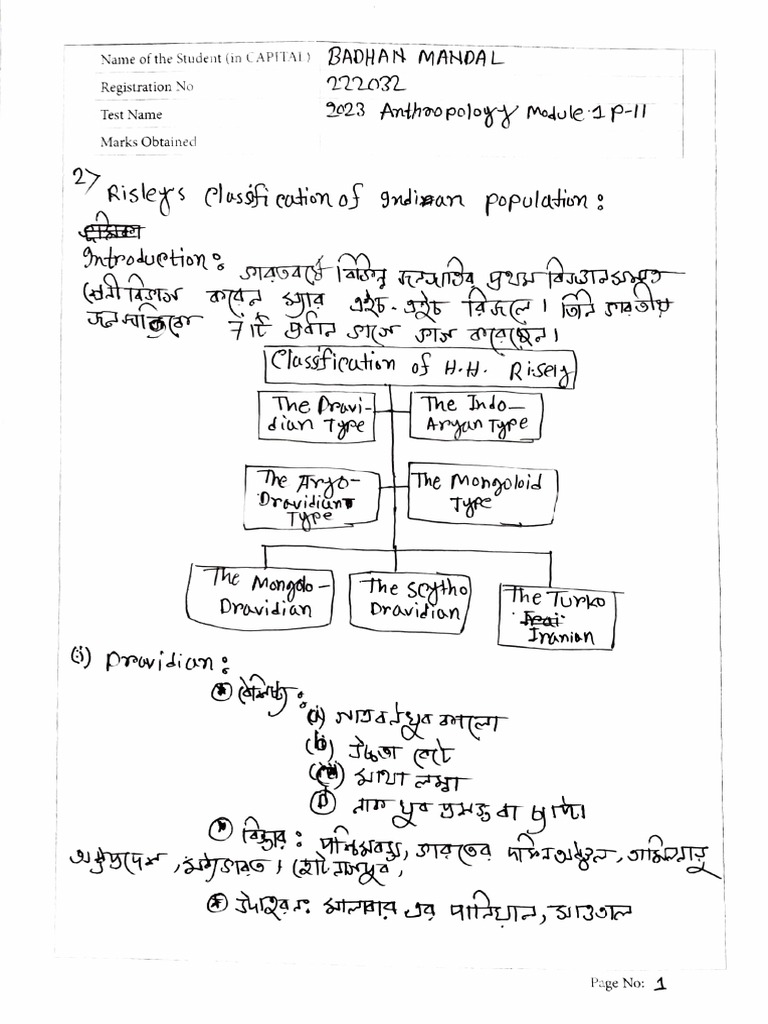 Name of the Student (in CAPITAL) BADHAN MANDAL
Registration No 222032
Test Name 2023 Anthropology Module 1 P-II
Marks Obtained
2) Risleys Classification of Indian population:
Introduction: ভারতবর্ষে বিভিন্ন জনজাতির প্রথম বিজ্ঞানসম্মত
শ্রেনী বিভাগ করেন স্যার এইচ-এইচ রিজলে। তিনি ভারতীয়
জনজাতিকে 7 টি প্রধান ভাগে ভাগ করেছেন।
Classification of H.H. Risely
The Dravi-
dian Type
The Indo-
Aryan Type
The Aryo-
Dravidian
Type
The Mongoloid
Type
The Mongolo-
Dravidian
The Scytho
Dravidian
The Turko
Iranian
(i) Dravidian:
বৈশিষ্ট্য:
(a) গাত্রবর্ণ খুব কালো
(b) উচ্চতা বেটে
(c) মাথা লম্বা
(D) নাক খুব প্রসস্ত বা চ্যাপ্টা
বিস্তার: পশ্চিমবঙ্গ, ভারতের দক্ষিন অঞ্চল, তামিলনাড়ু
অন্ধ্রপ্রদেশ, মধ্যভারত। ছোটনাগপুর,
উদাহরন: মালাবার এর পানিয়ান, সাওতাল
Page No: 1